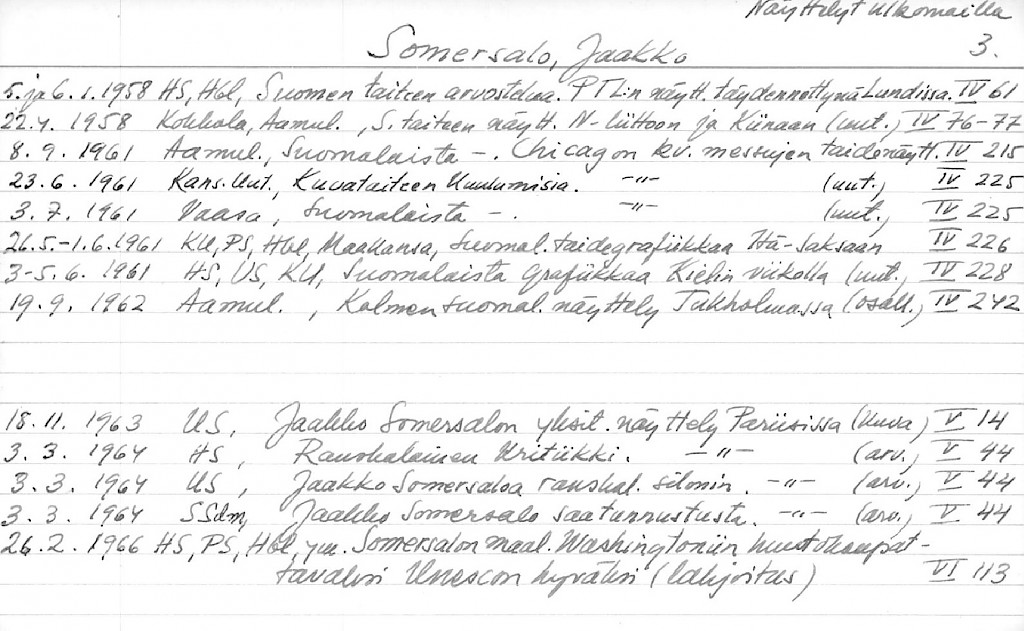 Näyttelyt ulkomailla
Somersalo, Jaakko 3.
5. ja 6.1.1958 HS, Hbl, Suomen taiteen arvostelua. PTL:n näytt. täydennettynä Lundissa. IV 61
22.4. 1958 Kokkola, Aamul., S. taiteen näytt. N-liittoon ja Kiinaan (uut.) IV 76-77
8.9. 1961 Aamul., Suomalaista -. Chicagon kv. messujen taidenäytt. IV 215
23.6. 1961 Kans.Uut., Kuvataiteen kuulumisia. -"- (uut.) IV 225
3.7. 1961 Vaasa, Suomalaista -. -"- (uut.) IV 225
26.5.-1.6.1961 KU, PS, Hbl, Maakansa, Suomal. taidegrafiikkaa Itä-Saksaan IV 226
3-5.6. 1961 HS, US, KU, Suomalaista grafiikkaa Kielin viikolla (uut.) IV 228
19.9. 1962 Aamul., Kolmen suomal. näyttely Tukholmassa (osall.) IV 242
18.11. 1963 US, Jaakko Somersalon yksit. näyttely Pariisissa (kuva) V 14
3.3. 1964 HS, Ranskalainen kritiikki. -"- (arv.) V 44
3.3. 1964 US, Jaakko Somersaloa ranskal. silmin. -"- (arv.) V 44
3.3. 1964 SSdm, Jaakko Somersalo saa tunnustusta. -"- (arv.) V 44
26.2. 1966 HS, PS, Hbl, ym. Somersalon maal. Washingtoniin huutokaupat-
tavaksi Unescon hyväksi (lahjoitus) VI 113